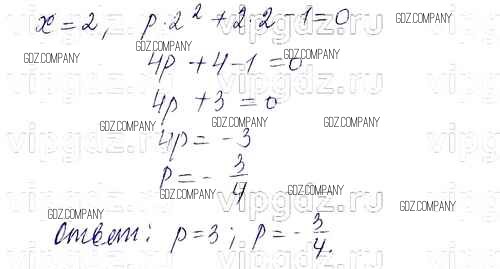 x = 2, p · 2² + 2 · 2 - 1 = 0
GDZ.COMPANY GDZ.COMPANY
GDZ.COMPANY GDZ.COMPANY
4p + 4 - 1 = 0
4p + 3 = 0
GDZ.COMPANY GDZ.COMPANY GDZ.COMPANY
4p = -3
p = - 3/4
GDZ.COMPANY GDZ.COMPANY
GDZ.COMPANY GDZ.COMPANY
Ответ: p = 3; p = - 3/4.
GDZ.COMPANY GDZ.COMPANY
vipgdz.ru vipgdz.ru